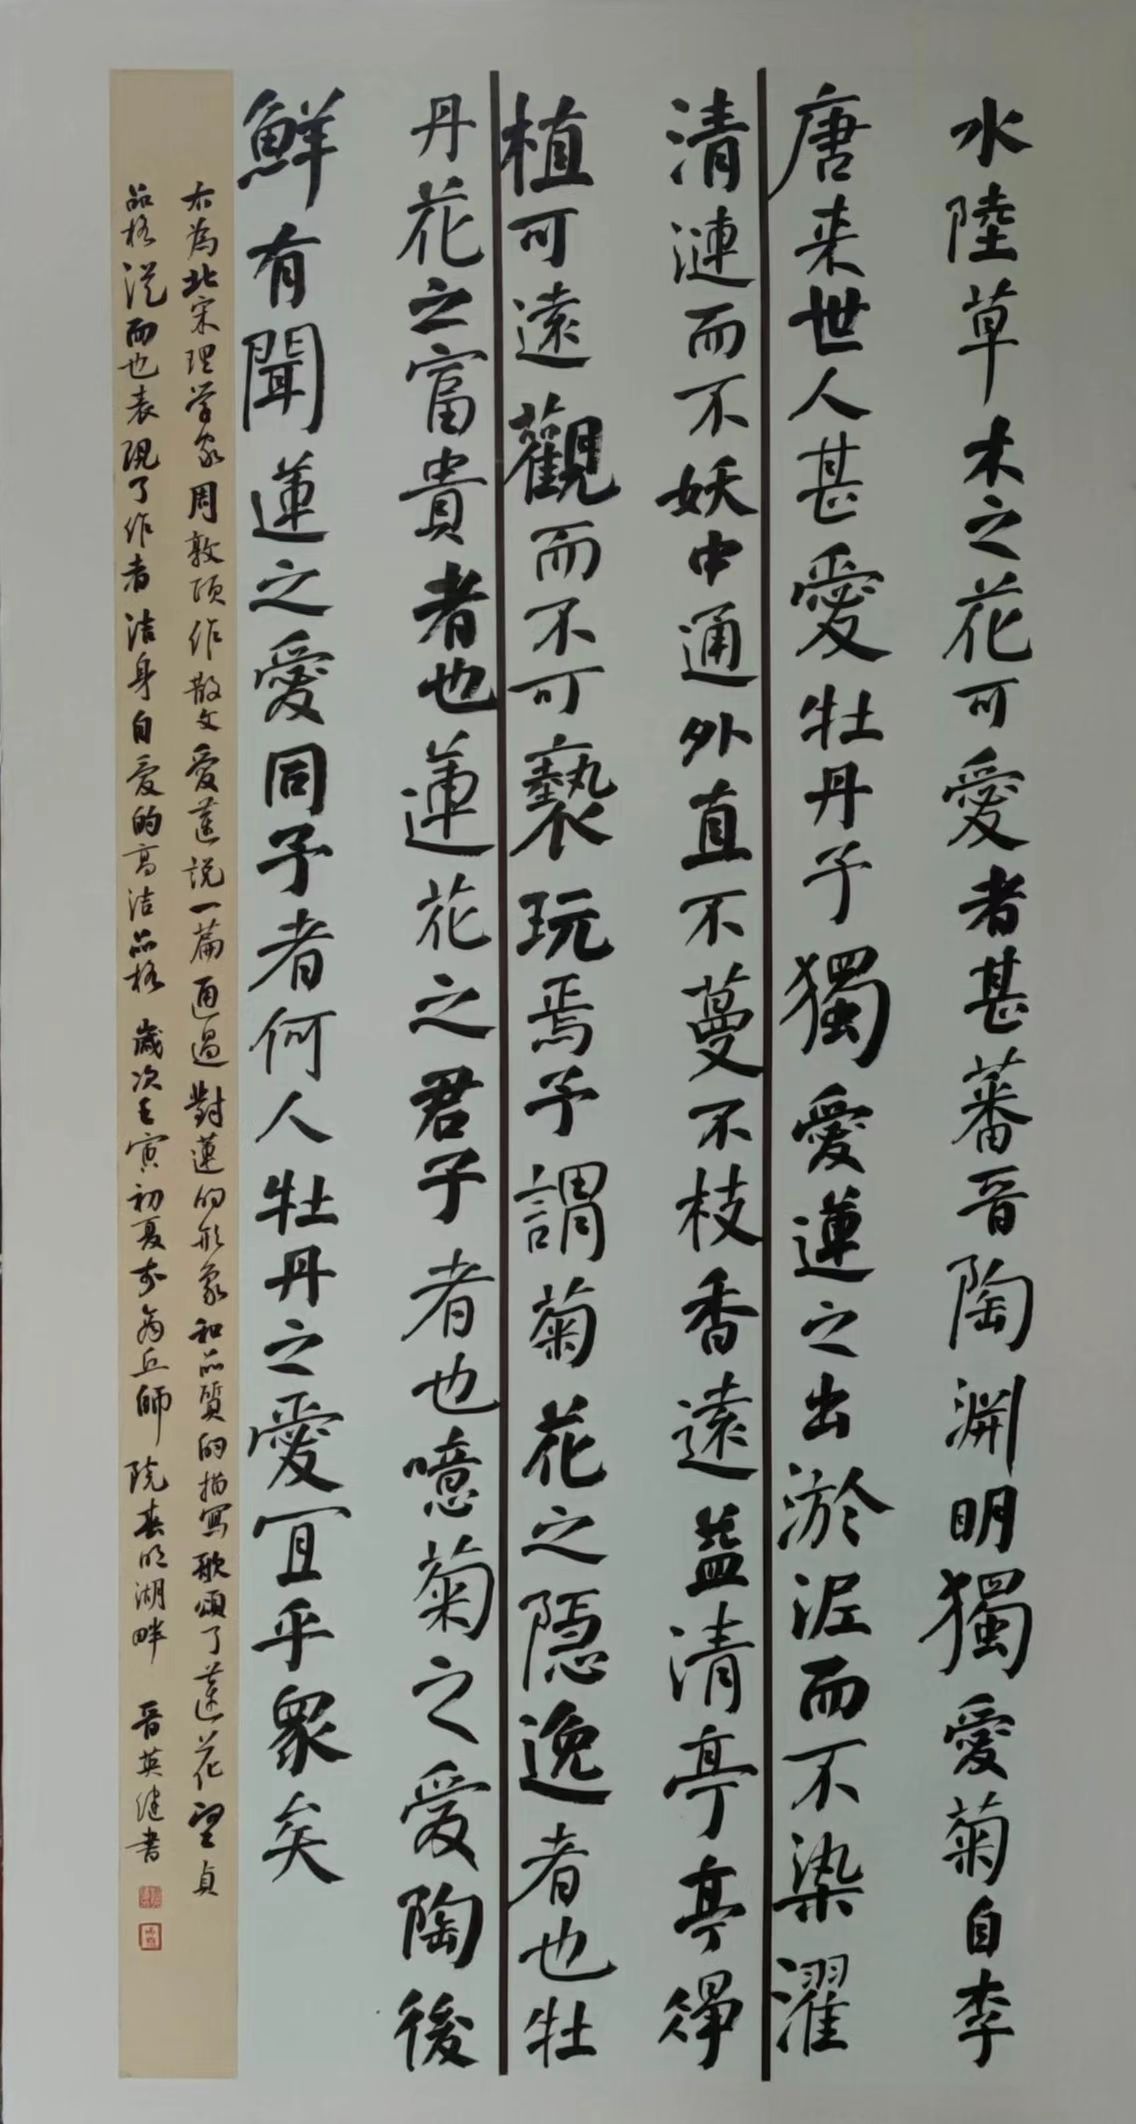 水陸草木之花可愛者甚蕃晉陶淵明獨愛菊自李
唐来世人甚愛牡丹予獨愛蓮之出淤泥而不染濯
清漣而不妖中通外直不蔓不枝香遠益清亭亭淨
植可遠觀而不可褻玩焉予謂菊花之隱逸者也牡
丹花之富貴者也蓮花之君子者也噫菊之爱陶後
鮮有聞蓮之愛同予者何人牡丹之愛宜乎衆矣
右為北宋理学家周敦頤作散文爱莲説一篇通過對蓮的形象和品質的描寫歌頌了莲花堅貞
品格從而也表現了作者洁身自爱的高洁品格 歲次壬寅初夏於 丘師院 明湖畔 晉英健書